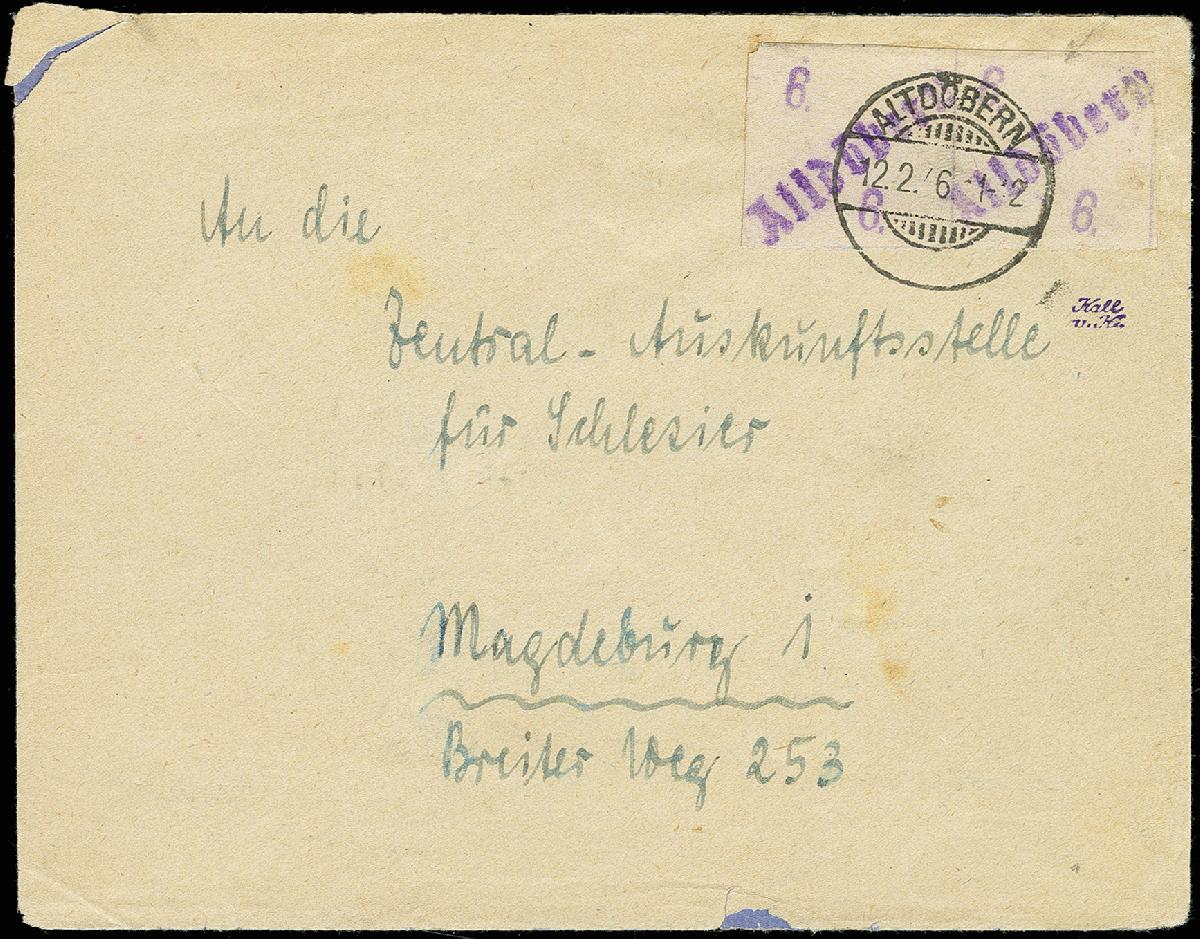 6. 6.
Altdöbern Altdöbern
6. 6.
ALTDÖBERN
12.2.46
An die
Zentral-Auskunftsstelle
für Schlesier
Magdeburg 1
Breiter Weg 253